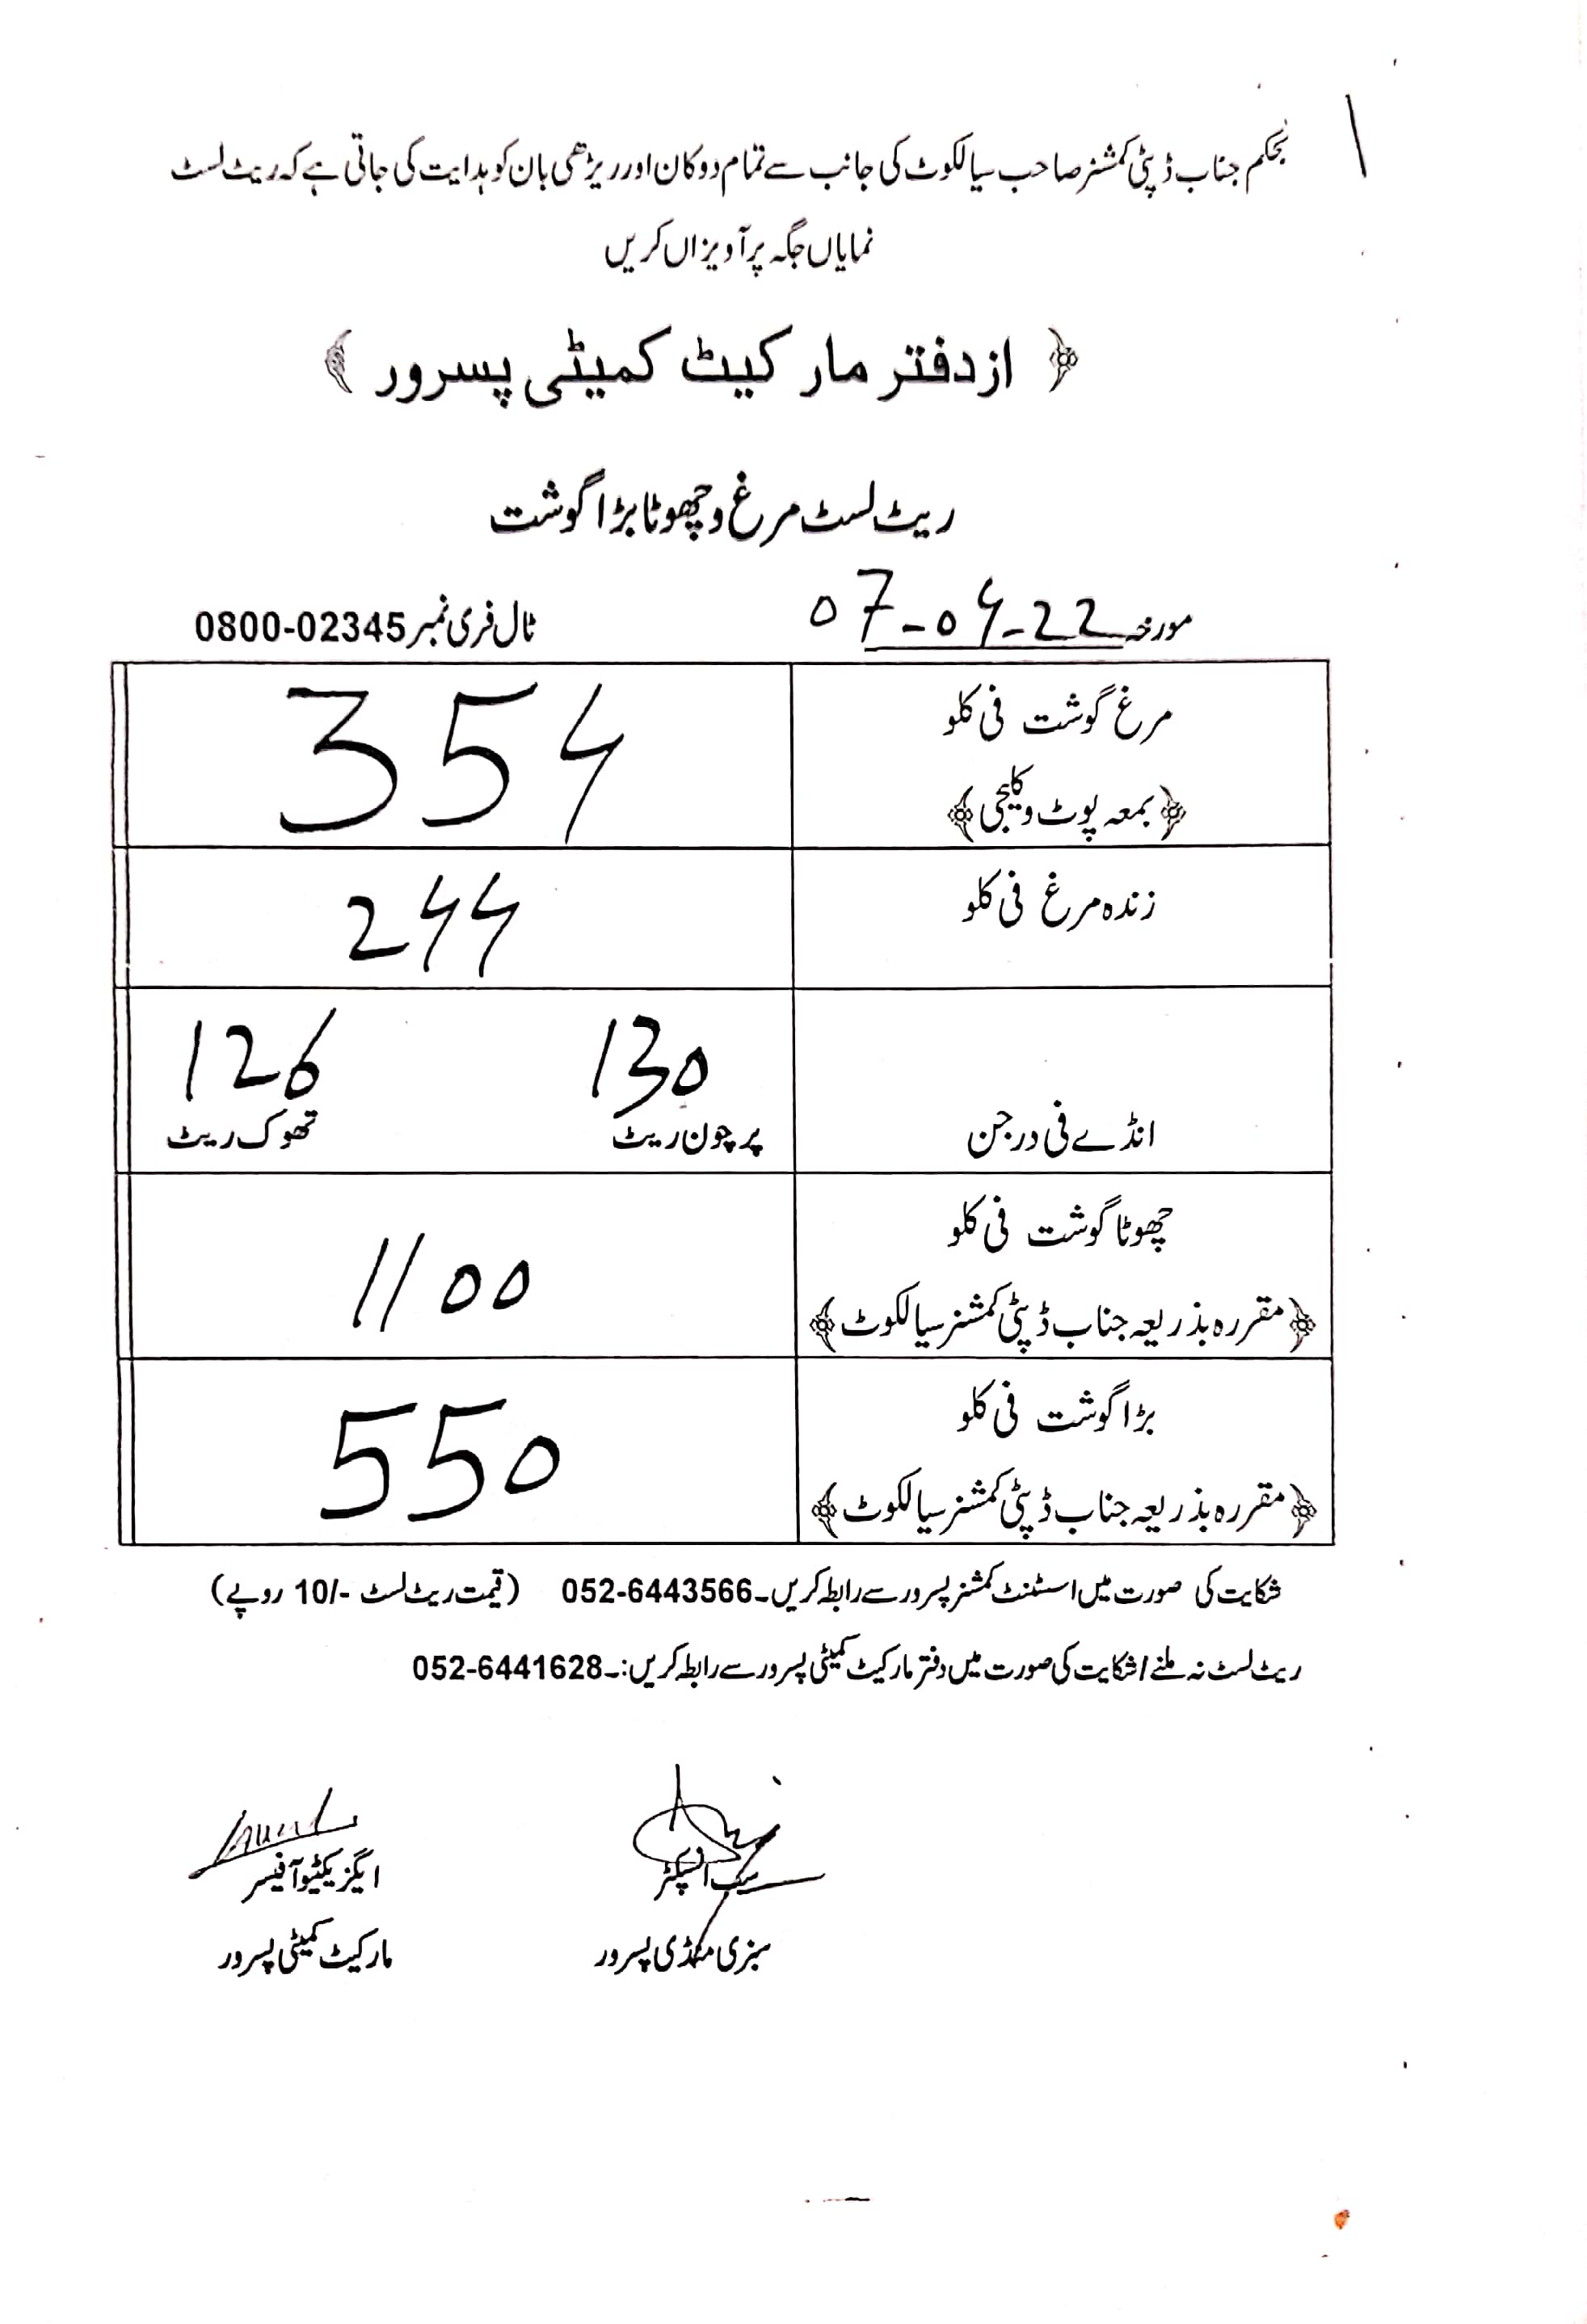 بحکم جناب ڈپٹی کمشنر صاحب سیالکوٹ کی جانب سے تمام دوکان اور ریڑھی بان کو ہدایت کی جاتی ہے کہ ریٹ لسٹ
نمایاں جگہ پر آویزاں کریں
﴿ از دفتر مارکیٹ کمیٹی پسرور ﴾
ریٹ لسٹ مرغ و چھوٹا بڑا گوشت
مورخہ 07-04-22 ٹال فری نمبر 0800-02345
مرغ گوشت فی کلو 354
﴿بمعہ پوٹ و کلیجی﴾
زندہ مرغ فی کلو 244
130 126
انڈے فی درجن پرچون ریٹ تھوک ریٹ
چھوٹا گوشت فی کلو 1100
﴿مقررہ بذریعہ جناب ڈپٹی کمشنر سیالکوٹ﴾
بڑا گوشت فی کلو 550
﴿مقررہ بذریعہ جناب ڈپٹی کمشنر سیالکوٹ﴾
شکایت کی صورت میں اسسٹنٹ کمشنر پسرور سے رابطہ کریں۔052-6443566 (قیمت ریٹ لسٹ -/10 روپے)
ریٹ لسٹ نہ ملنے / شکایت کی صورت میں دفتر مارکیٹ کمیٹی پسرور سے رابطہ کریں:۔052-6441628
سب انسپکٹر ایگزیکٹیو آفیسر
سبزی منڈی پسرور مارکیٹ کمیٹی پسرور